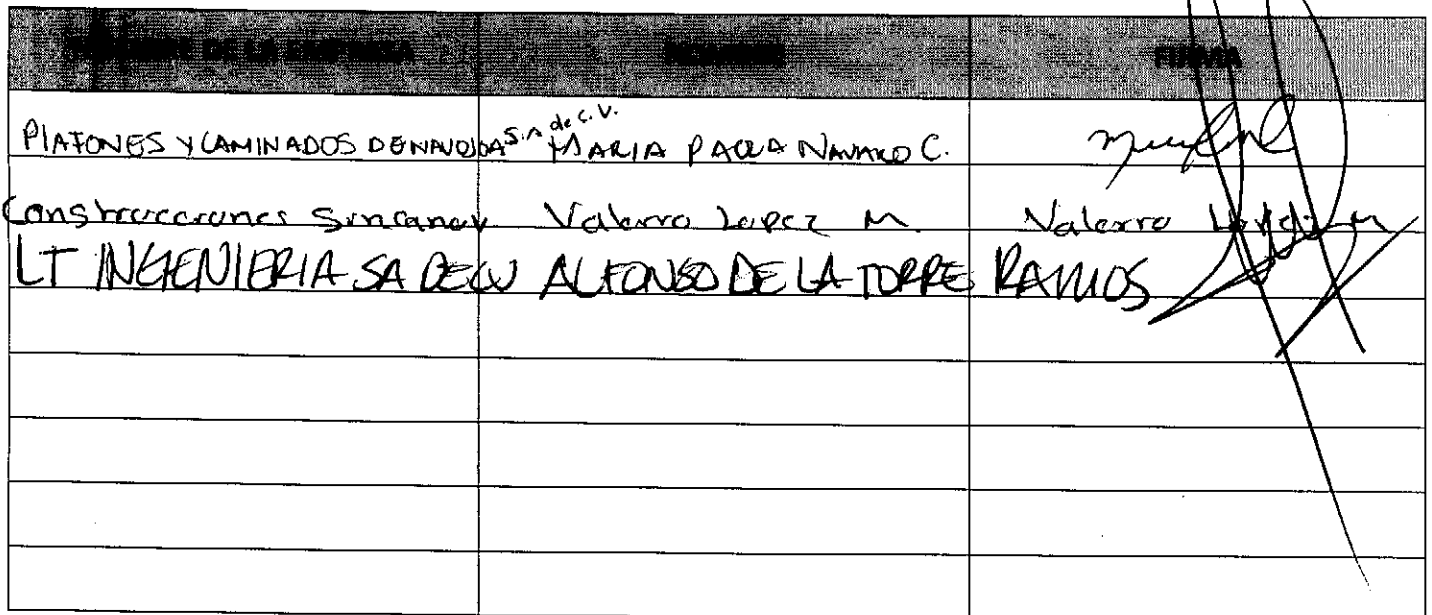 NOMBRE DE LA EMPRESA NOMBRE FIRMA
PLAFONES Y LAMINADOS DE NAVOJOA S.A de C.V. MARIA PAOLA NAVARRO C.
Construcciones Valerio Lopez M. Valerio Lopez M
LT INGENIERIA SA DE CV ALFONSO DE LA TORRE RAMOS